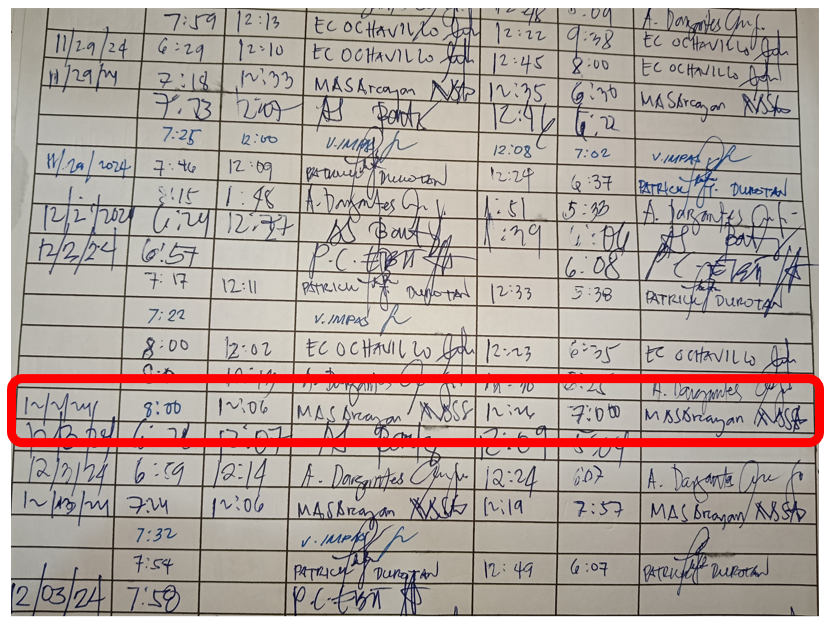 7:59 12:13 EC OCHAVILLO 12:48 5:09 A. Dargantes
11/29/24 6:29 12:10 EC OCHAVILLO 12:22 9:38 EC OCHAVILLO
11/29/24 7:18 12:33 MASArcayan 12:45 8:00 EC OCHAVILLO
7:23 12:07 AS 12:35 6:30 MASArcayan
7:25 12:00 V. IMPAS 12:46 6:22
11/29/2024 7:46 12:09 PATRICK DUROTAN 12:08 7:02 V. IMPAS
8:15 1:48 A. Dargantes 12:24 6:37 PATRICK DUROTAN
12/2/2024 6:24 12:27 AS 1:51 5:33 A. Dargantes
12/2/24 6:57 P.C. 1:39 AS
7:17 12:11 PATRICK DUROTAN 12:33 6:08 P.C.
7:22 V. IMPAS 5:38 PATRICK DUROTAN
8:00 12:02 EC OCHAVILLO 12:23 6:35 EC OCHAVILLO
A. Dargantes A. Dargantes
12/2/24 8:00 12:06 MASArcayan 12:26 7:00 MASArcayan
12/3/24 12:07 AS 12:09 5:04
12/3/24 6:59 12:14 A. Dargantes 12:24 6:07 A. Dargantes
12/13/24 7:24 12:06 MASArcayan 12:19 7:57 MASArcayan
7:32 V. IMPAS
7:54 PATRICK DUROTAN 12:49 6:07 PATRICK DUROTAN
12/03/24 7:58 P.C.